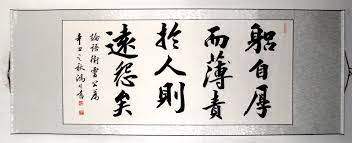 躳自厚
而薄責
於人則
遠怨矣
論語衛靈公篇
辛丑之秋鴻書